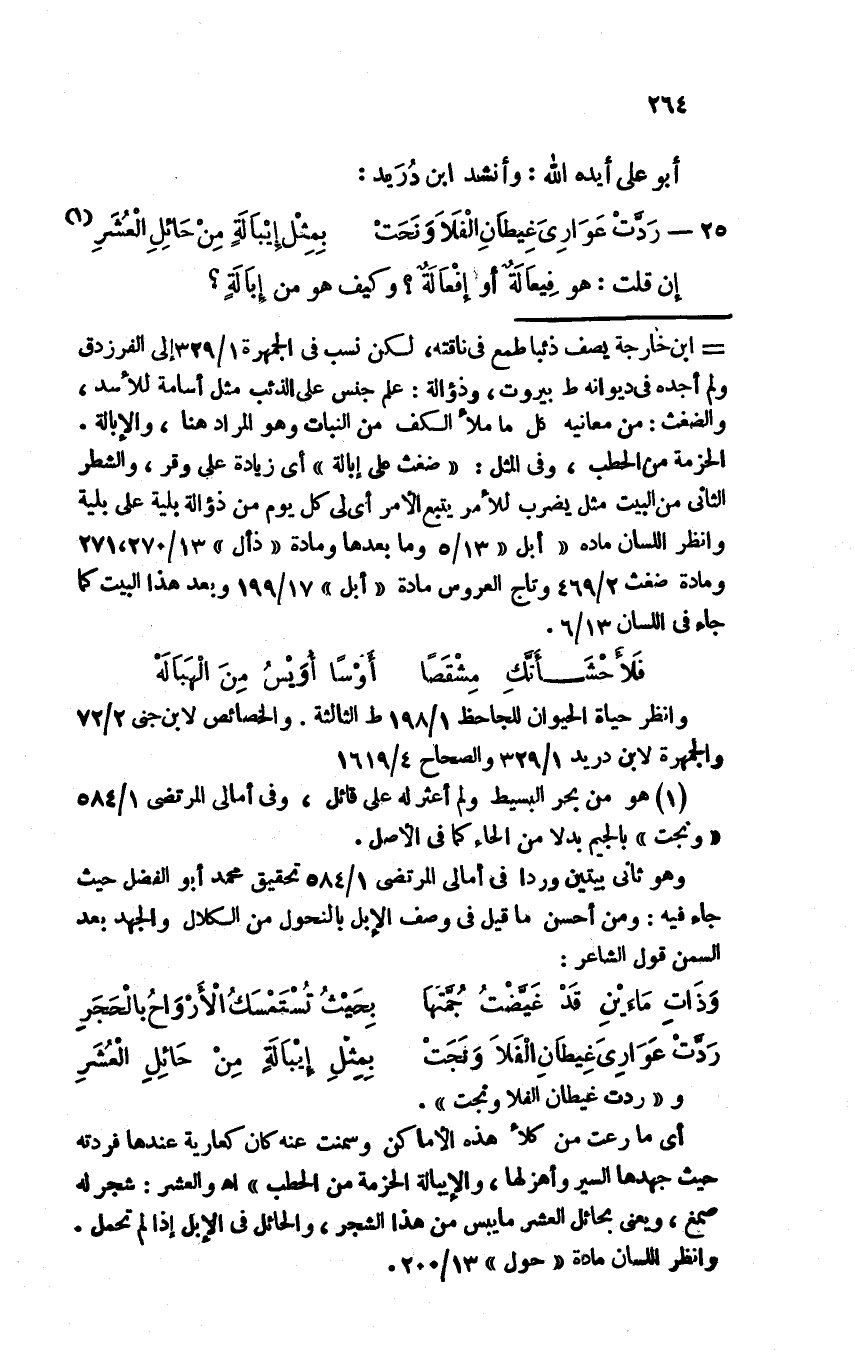 ٢٦٤
أبو على أيده الله : وأنشد ابن دُرَيد :
٢٥ – رَدَّتْ عَوَارِىَ غِيطَانِ الْفَلاَ وَنَحَتْ بِمِثْلِ إِيْبَالَةٍ مِنْ حَائِلِ الْعُشَرِ (١)
إن قلت : هو فِيعَالَةٌ أو إفْعَالَةٌ ؟ وكيف هو من إبَالَةٍ ؟
= ابن خارجة يصف ذئبا طمع فى ناقته، لكن نسب فى الجمهرة ٣٢٩/١ إلى الفرزدق
ولم أجده فى ديوانه ط بيروت ، وذؤالة : علم جنس على الذئب مثل أسامة للأسد ،
والضغث : من معانيه كل ما ملأ الكف من النبات وهو المراد هنا ، والإبالة .
الحزمة من الحطب ، وفى المثل : « ضغث على إبالة » أى زيادة على وقر ، والشطر
الثانى من البيت مثل يضرب للأمر يتبع الأمر أى لى كل يوم من ذؤالة بلية على بلية
وانظر اللسان ماده « أبل « ٥/١٣ وما بعدها ومادة « ذأل » ٢٧٠/١٣ ، ٢٧١
ومادة ضغث ٤٦٩/٢ وتاج العروس مادة « أبل » ١٩٩/١٧ وبعد هذا البيت كما
جاء فى اللسان ٦/١٣ .
فَلَأَحْشَـــأَنَّكِ مِشْقَصًا أَوْسًا أُوَيْسُ مِنَ الْهَبَالَهْ
وانظر حياة الحيوان للجاحظ ١٩٨/١ ط الثالثة . والخصائص لابن جنى ٧٢/٢
والجمهرة لابن دريد ٣٢٩/١ والصحاح ١٦١٩/٤
(١) هو من بحر البسيط ولم أعثر له على قائل ، وفى أمالى المرتضى ٥٨٤/١
« ونجت » بالجيم بدلا من الحاء كما فى الأصل .
وهو ثانى بيتين وردا فى أمالى المرتضى ٥٨٤/١ تحقيق محمد أبو الفضل حيث
جاء فيه : ومن أحسن ما قيل فى وصف الإبل بالنحول من الكلال والجهد بعد
السمن قول الشاعر :
وَذَاتِ مَاءَيْنِ قَدْ غَيَّضْتُ جُمَّتَهَا بِحَيْثُ تُسْتَمْسَكُ الْأَرْوَاحُ بِالْحَجَرِ
رَدَّتْ عَوَارِىَ غِيطَانِ الْفَلَا وَنَجَتْ بِمِثْلِ إِيْبَالَةٍ مِنْ حَائِلِ الْعُشَرِ
و « ردت غيطان الفلا ونجت » .
أى ما رعت من كلأ هذه الأماكن وسمنت عنه كان كعارية عندها فردته
حيث جهدها السير وأهزلها ، والإيبالة الحزمة من الحطب » اه والعشر : شجر له
صمغ ، ويعنى بحائل العشر مايبس من هذا الشجر ، والحائل فى الإبل إذا لم تحمل .
وانظر اللسان مادة « حول » ٢٠٠/١٣ .